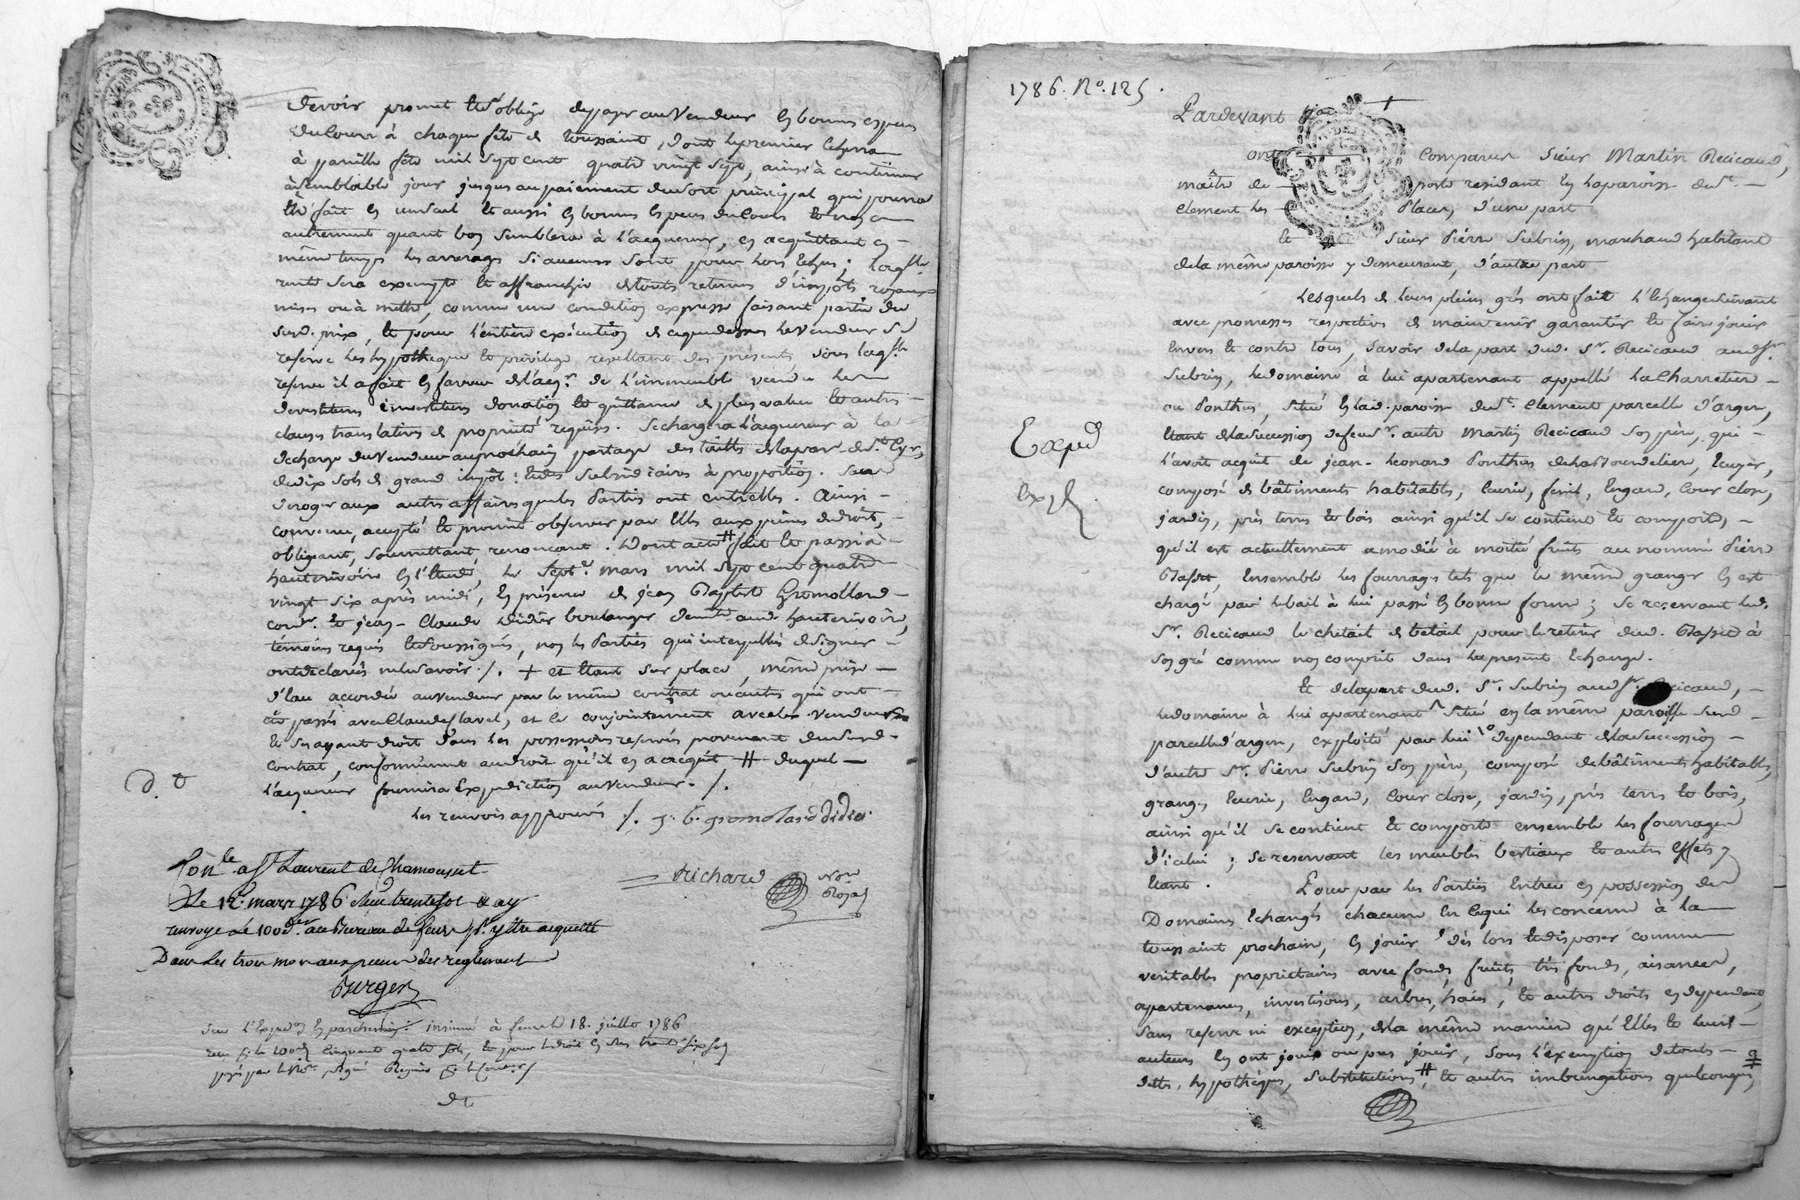 devoir promet et s'oblige de payer au vendeur en bonnes especes
du cours à chaque fête de toussaint, dont le premier echerra
à pareille fête mil sept cent quatre vingt sept, ainsi à continuer
à semblable jour jusques au paiement du sort principal qui pourra
être fait en un seul et aussi en bonnes especes du cours et non
autrement quant bon semblera à l'acquereur, en acquittant en
même tems les arrerages si aucuns sont pour lors echus; laq.lle
rente sera exempte et affranchie de toutes retenues d'impôts royaux
mises ou à mettre, comme une condition expresse faisant partie du
susd. prix, et pour l'entière exécution de ce que dessus le vendeur se
reserve les hypotheque et privilege resultant des présentes sous laq.lle
reserve il a fait en faveur de l'acq.r de l'immeuble vendu les
devestitures investitures donation et quittance de plus value et autres
clauses translatives de propriété requises. Se chargera l'acquereur à la
decharge du vendeur au prochain partage des tailles de la par. de St. Cyr,
de dix sols de grand impôt; et des subsidiaires à proportion. Sans
deroger aux autres affaires que les Parties ont entr'elles. Ainsi
convenu, accepté et promis observer par elles aux peines de droit,
obligeant, soumettant renonceant. Dont acte # fait et passé à
hauterivoire en l'étude, le sept.e mars mil sept cent quatre
vingt six après midi, en présence de jean Baptiste Gromollard
cord.r et jean-Claude Didier boulanger dem.t aud. hauterivoire,
témoins requis et soussignés, non les Parties qui interpellées de signer
ont declarées ne le savoir ./. + et étant sur place, même prise
d'eau accordée au vendeur par le même contrat ou autres qui ont
été passés avec Claude flavel, et ce conjointement avec les vendeurs
et ses ayant droit dans les possessions reservés provenant dud. susd.
contrat, conformement au droit qu'il en a acquit # duquel
l'acquereur fournira expedition au vendeur ./.
D. t
Les renvois approuvés ./. j. b. gromolard didier
Richard Not.re Royal
Con.le a St Laurent de Chamousset
Le 12. mars 1786 Reçu trente sol &
renvoyé le 100.d. au Bureau de feurs
Dans les trois mois aux peines des reglement
Burger
insinué à feurs le 18. juillet 1786
cinquante quatre sols, et pour
payé par le No.re, signé
dt
1786. No. 125.
Pardevant
ont Comparus Sieur Martin Recicaud,
maître de poste residant en la paroisse de St.
Clement les Places, d'une part
et Sieur Pierre Subrin, marchand habitant
de la même paroisse y demeurant, d'autre part
Lesquels de leurs pleins grés ont fait l'échange suivant
avec promesses respectives de maintenir garantir et faire jouir
envers et contre tous, savoir de la part dud. Sr. Recicaud aud. Sr.
Subrin, le domaine à lui apartenant appellé la Charretier
ou Ponthus, situé en lad. paroisse de St. Clement parcelle d'argen,
étant de la succession de feu Sr. autre Martin Recicaud son père, qui
l'avoit acquit de jean-Leonard Ponthus de la Bourdelier, ecuyer,
composé de bâtiments habitables, ecurie, fenil, hangard, cour close,
jardin, près terres et bois ainsi qu'il se contient et comporte,
qu'il est actuellement amodié à moitié fruits au nommé Pierre
Basset, ensemble les fourrages tels que le même granger en est
chargé par le bail à lui passé en bonne forme; se reservant led.
Sr. Recicaud le cheptail de betail pour le retirer dud. Basset à
son gré comme non comprit dans le present echange.
Et de la part dud. Sr. Subrin aud. Sr. Recicaud,
le domaine à lui apartenant situé en la même paroisse susd.
parcelle d'argen, exploité par lui dependant de la succession
d'autre Sr. Pierre Subrin son père, composé de bâtiments habitables,
granges ecurie, hangard, cour close, jardin, près terres et bois,
ainsi qu'il se contient et comporte ensemble les fourrages
d'icelui; se reservant les meubles bestiaux et autres effets y
étant. Pour par les Parties entrer en possession des
Domaines échangés chacune en ce qui les concerne à la
toussaint prochain, en jouir dès lors et disposer comme
veritables proprietaires avec fonds, fruits, très fonds, aisances,
apartenances, investisons, arbres, haies, et autres droits en dependant,
sans reserve ni exception, de la même maniere qu'elles et leurs
auteurs en ont joui ou pus jouir, sous l'exemption de toutes
dettes, hypothéques, substitutions #, et autres imbringations quelconques,
Exp.d
Exp.